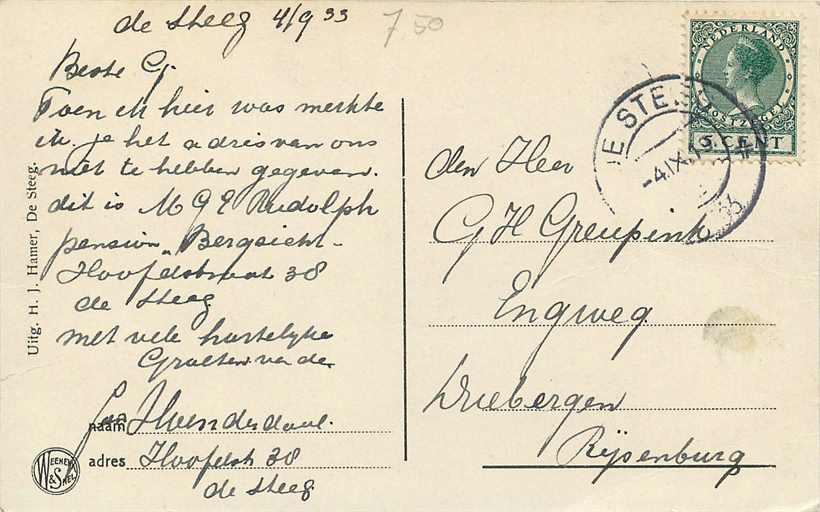 de Steeg 4/9 33
7 50
Beste G,
Toen ik hier was merkte
ik je het adres van ons
niet te hebben gegeven.
dit is M G E Rudolph
pension "Bergzicht"
Hoofdstraat 38
de Steeg
met vele hartelijke
Groeten van de
naam
adres Hoofdstr 38
de Steeg
Uitg. H. J. Hamer, De Steeg.
WEENEN & SNEL
NEDERLAND
POSTZEGEL
5 CENT
DE STEEG
-4.IX
33
den Heer
G H Greupink
Engweg
Driebergen
Rijsenburg